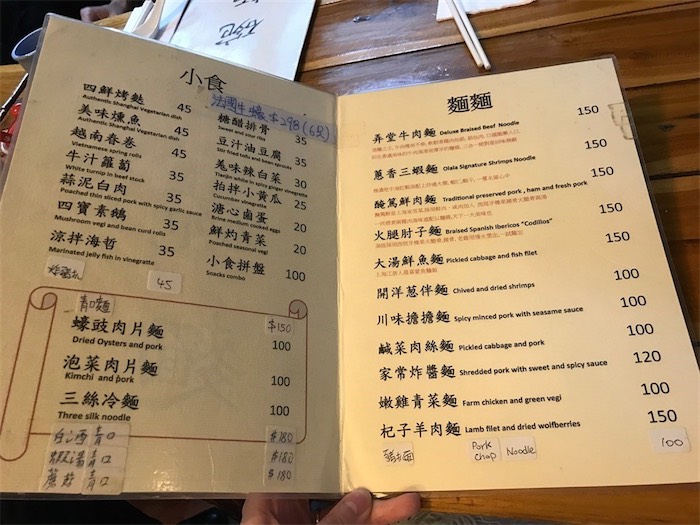 小食
四鮮烤麩 45
Authentic Shanghai Vegetarian dish
美味燻魚 45
Authentic Shanghai Vegetarian dish
越南春卷 45
Vietnamese spring rolls
牛汁蘿蔔 35
White turnip in beef stock
蒜泥白肉 35
Poached thin sliced pork with spicy garlic sauce
四寶素鵝 35
Mushroom vegi and bean curd rolls
涼拌海哲 35
Marinated jelly fish in vinegratte
炸豬扒 45
法國生蠔 $298 (6只)
糖醋排骨 35
Sweet and sour ribs
豆汁油豆腐 35
Stir fried tofu and bean sprouts
羌味辣白菜 30
Tianjin white in spicy ginger vinegratte
拍拌小黃瓜 25
Cucumber vinegratte
溏心鹵蛋 20
Brine medium cooked eggs
鮮灼青菜 20
Poached seasonal vegi
小食拼盤 100
Snacks combo
青口麵 $150
蠔豉肉片麵 100
Dried Oysters and pork
泡菜肉片麵 100
Kimchi and pork
三絲冷麵 100
Three silk noodle
白酒青口 $180
蝦湯青口 $180
青口 $180
麵麵
弄堂牛肉麵 Deluxe Braised Beef Noodle 150
蔥香三蝦麵 Olala Signature Shrimps Noodle 150
醃篤鮮肉麵 Traditional preserved pork , ham and fresh pork 150
火腿肘子麵 Braised Spanish Ibericos "Codillos" 150
大湯鮮魚麵 Pickled cabbage and fish filet 150
開洋蔥伴麵 Chived and dried shrimps 100
川味擔擔麵 Spicy minced pork with seasame sauce 100
鹹菜肉絲麵 Pickled cabbage and pork 100
家常炸醬麵 Shredded pork with sweet and spicy sauce 120
嫩雞青菜麵 Farm chicken and green vegi 100
杞子羊肉麵 Lamb filet and dried wolfberries 150
豬扒麵 Pork Chop Noodle 100